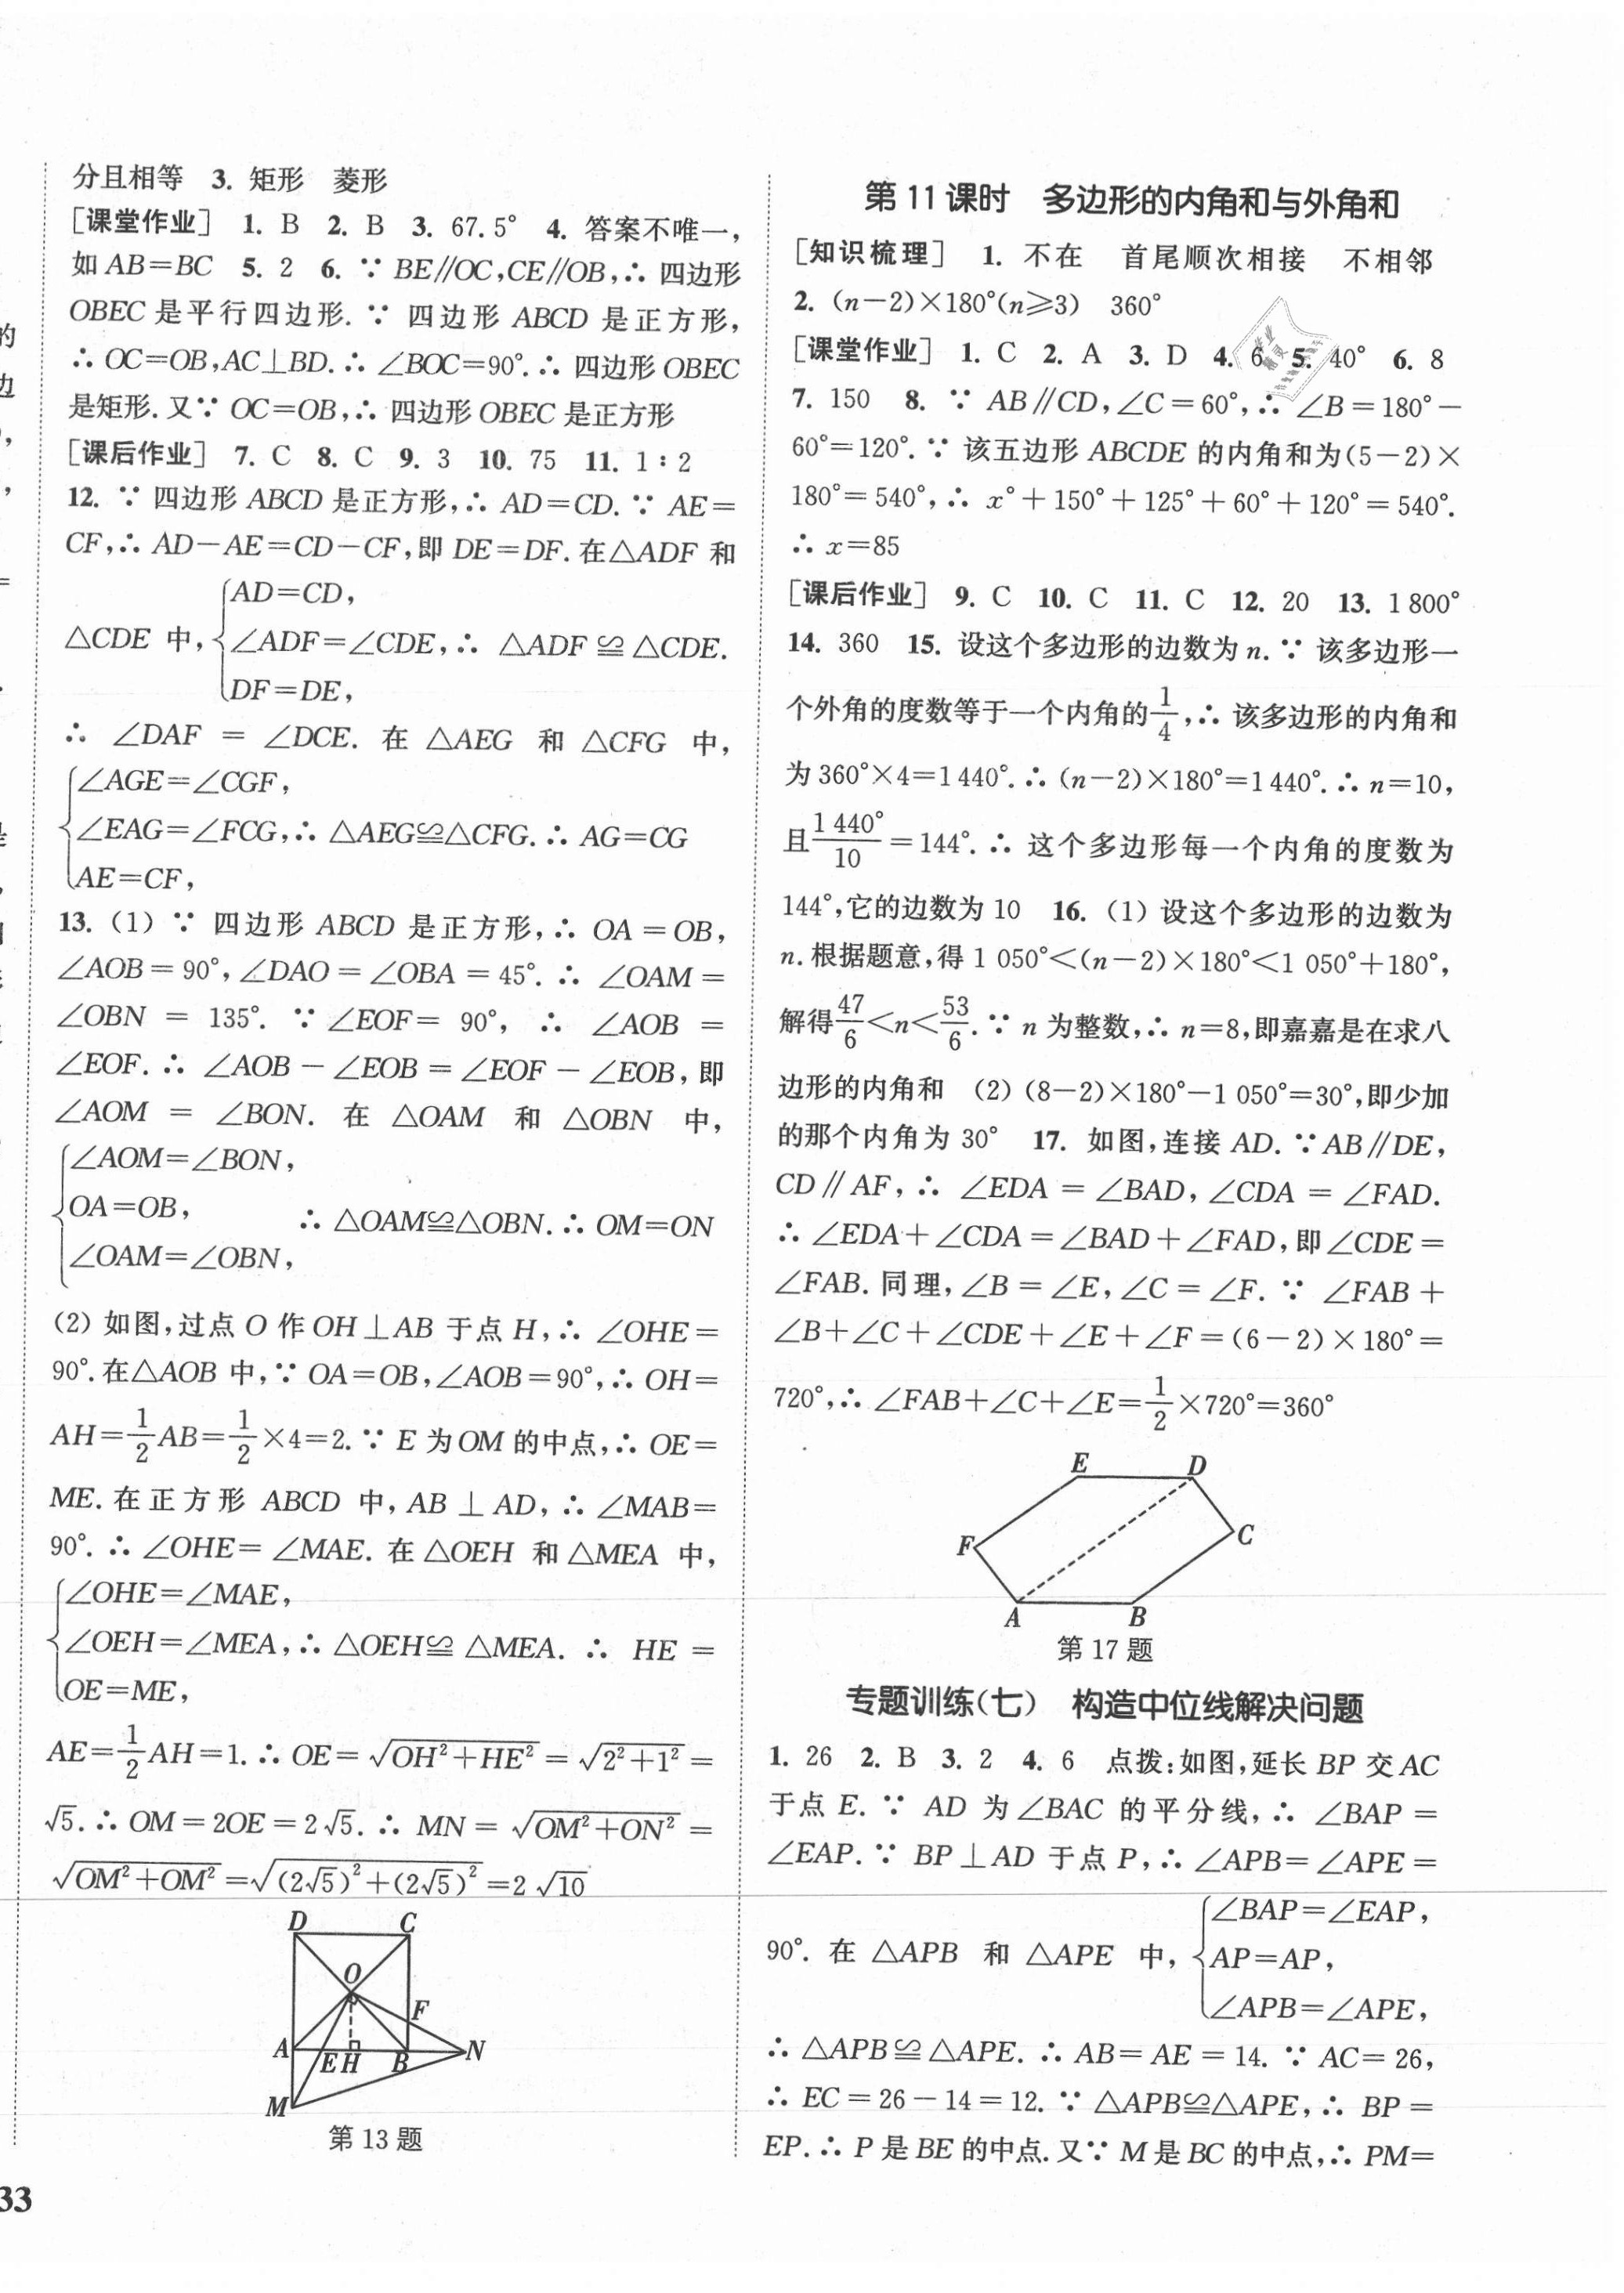 分且相等 3. 矩形 菱形
[课堂作业] 1. B 2. B 3. 67.5° 4. 答案不唯一,
如 AB=BC 5. 2 6. ∵ BE∥OC,CE∥OB,∴ 四边形
OBEC 是平行四边形. ∵ 四边形 ABCD 是正方形,
∴ OC=OB,AC⊥BD.∴ ∠BOC=90°.∴ 四边形 OBEC
是矩形.又∵ OC=OB,∴ 四边形 OBEC 是正方形
[课后作业] 7. C 8. C 9. 3 10. 75 11. 1∶2
12. ∵ 四边形 ABCD 是正方形,∴ AD=CD.∵ AE=
CF,∴ AD-AE=CD-CF,即 DE=DF.在△ADF 和
△CDE 中,{AD=CD,
∠ADF=∠CDE,∴ △ADF≌△CDE.
DF=DE,
∴ ∠DAF = ∠DCE. 在 △AEG 和 △CFG 中,
{∠AGE=∠CGF,
∠EAG=∠FCG,∴ △AEG≌△CFG.∴ AG=CG
AE=CF,
13. (1) ∵ 四边形 ABCD 是正方形,∴ OA=OB,
∠AOB=90°,∠DAO=∠OBA=45°.∴ ∠OAM=
∠OBN = 135°. ∵ ∠EOF= 90°, ∴ ∠AOB =
∠EOF.∴ ∠AOB-∠EOB=∠EOF-∠EOB,即
∠AOM = ∠BON. 在 △OAM 和 △OBN 中,
{∠AOM=∠BON,
OA=OB, ∴ △OAM≌△OBN.∴ OM=ON
∠OAM=∠OBN,
(2) 如图,过点 O 作 OH⊥AB 于点 H,∴ ∠OHE=
90°.在△AOB 中,∵ OA=OB,∠AOB=90°,∴ OH=
AH=1/2AB=1/2×4=2.∵ E 为 OM 的中点,∴ OE=
ME.在正方形 ABCD 中,AB⊥AD,∴ ∠MAB=
90°.∴ ∠OHE=∠MAE.在△OEH 和△MEA 中,
{∠OHE=∠MAE,
∠OEH=∠MEA,∴ △OEH≌△MEA. ∴ HE =
OE=ME,
AE=1/2AH=1.∴ OE=√(OH²+HE²)=√(2²+1²)=
√5.∴ OM=2OE=2√5.∴ MN=√(OM²+ON²)=
√(OM²+OM²)=√((2√5)²+(2√5)²)=2√10
D C
O
F
A E H B N
M
第 13 题
33
第 11 课时 多边形的内角和与外角和
[知识梳理] 1. 不在 首尾顺次相接 不相邻
2. (n-2)×180°(n≥3) 360°
[课堂作业] 1. C 2. A 3. D 4. 6 5. 40° 6. 8
7. 150 8. ∵ AB∥CD,∠C=60°,∴ ∠B=180°-
60°=120°.∵ 该五边形 ABCDE 的内角和为(5-2)×
180°=540°,∴ x°+150°+125°+60°+120°=540°.
∴ x=85
[课后作业] 9. C 10. C 11. C 12. 20 13. 1 800°
14. 360 15. 设这个多边形的边数为 n.∵ 该多边形一
个外角的度数等于一个内角的1/4,∴ 该多边形的内角和
为 360°×4=1 440°.∴ (n-2)×180°=1 440°.∴ n=10,
且1 440°/10=144°.∴ 这个多边形每一个内角的度数为
144°,它的边数为 10 16. (1) 设这个多边形的边数为
n.根据题意,得 1 050°<(n-2)×180°<1 050°+180°,
解得47/6<n<53/6.∵ n 为整数,∴ n=8,即嘉嘉是在求八
边形的内角和 (2) (8-2)×180°-1 050°=30°,即少加
的那个内角为 30° 17. 如图,连接 AD.∵ AB∥DE,
CD∥AF,∴ ∠EDA=∠BAD,∠CDA=∠FAD.
∴ ∠EDA+∠CDA=∠BAD+∠FAD,即∠CDE=
∠FAB.同理,∠B=∠E,∠C=∠F. ∵ ∠FAB+
∠B+∠C+∠CDE+∠E+∠F=(6-2)×180°=
720°,∴ ∠FAB+∠C+∠E=1/2×720°=360°
E D
F C
A B
第 17 题
专题训练(七) 构造中位线解决问题
1. 26 2. B 3. 2 4. 6 点拨:如图,延长 BP 交 AC
于点 E.∵ AD 为∠BAC 的平分线,∴ ∠BAP=
∠EAP.∵ BP⊥AD 于点 P,∴ ∠APB=∠APE=
90°. 在 △APB 和 △APE 中,{∠BAP=∠EAP,
AP=AP,
∠APB=∠APE,
∴ △APB≌△APE.∴ AB=AE=14.∵ AC=26,
∴ EC=26-14=12.∵ △APB≌△APE,∴ BP=
EP.∴ P 是 BE 的中点.又∵ M 是 BC 的中点,∴ PM=